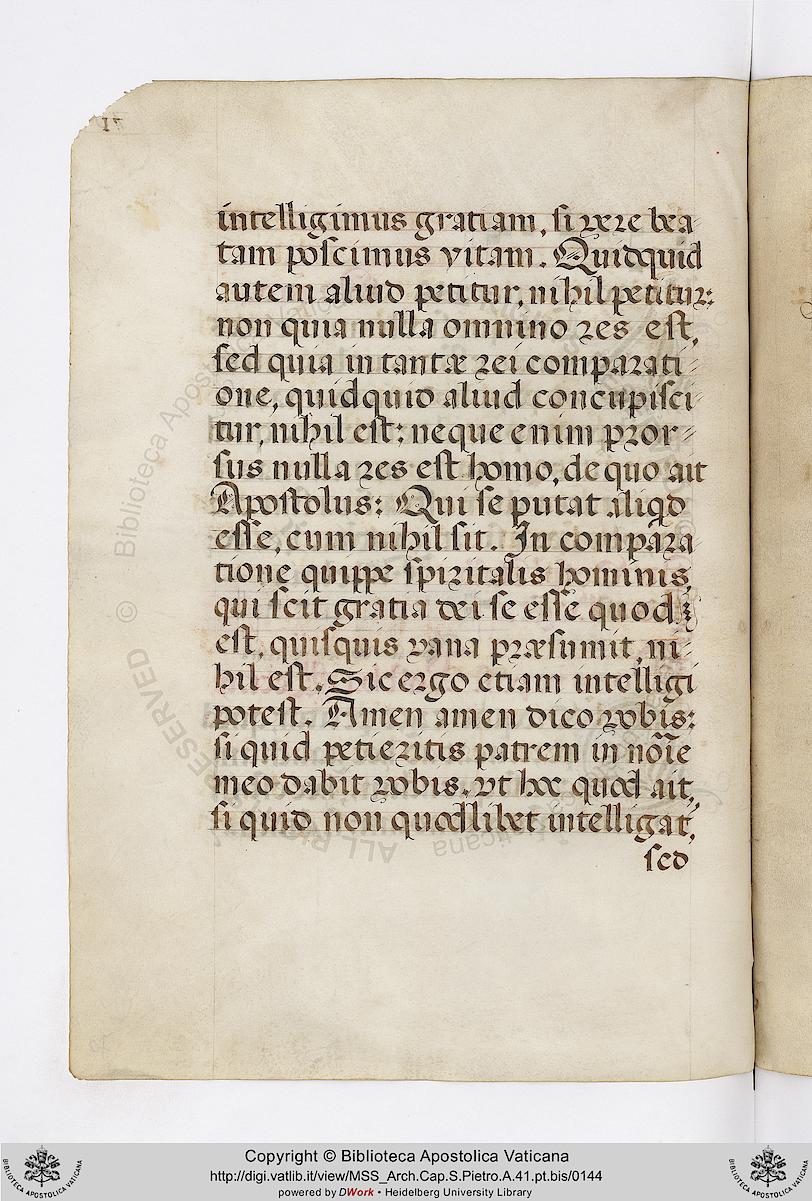 intelligimus gratiam, si vere bea⸗
tam poscimus vitam. Quidquid
autem aliud petitur, nihil petitur:
non quia nulla omnino res est,
sed quia in tantæ rei comparati⸗
one, quidquid aliud concupisci⸗
tur, nihil est: neque enim pror⸗
sus nulla res est homo, de quo ait
Apostolus: Qui se putat aliqd
esse, cum nihil sit. In compara⸗
tione quippe spiritalis hominis,
qui scit gratia dei se esse quod
est, quisquis vana præsumit, ni⸗
hil est. Sic ergo etiam intelligi
potest. Amen amen dico vobis:
si quid petieritis patrem in noĩe
meo dabit vobis. vt hoc quod ait,
si quid non quodlibet intelligat,
sed
© Biblioteca Apostolica Vaticana
ALL RIGHTS RESERVED
Copyright © Biblioteca Apostolica Vaticana
http://digi.vatlib.it/view/MSS_Arch.Cap.S.Pietro.A.41.pt.bis/0144
powered by DWork • Heidelberg University Library
BIBLIOTECA APOSTOLICA VATICANA
BIBLIOTECA APOSTOLICA VATICANA